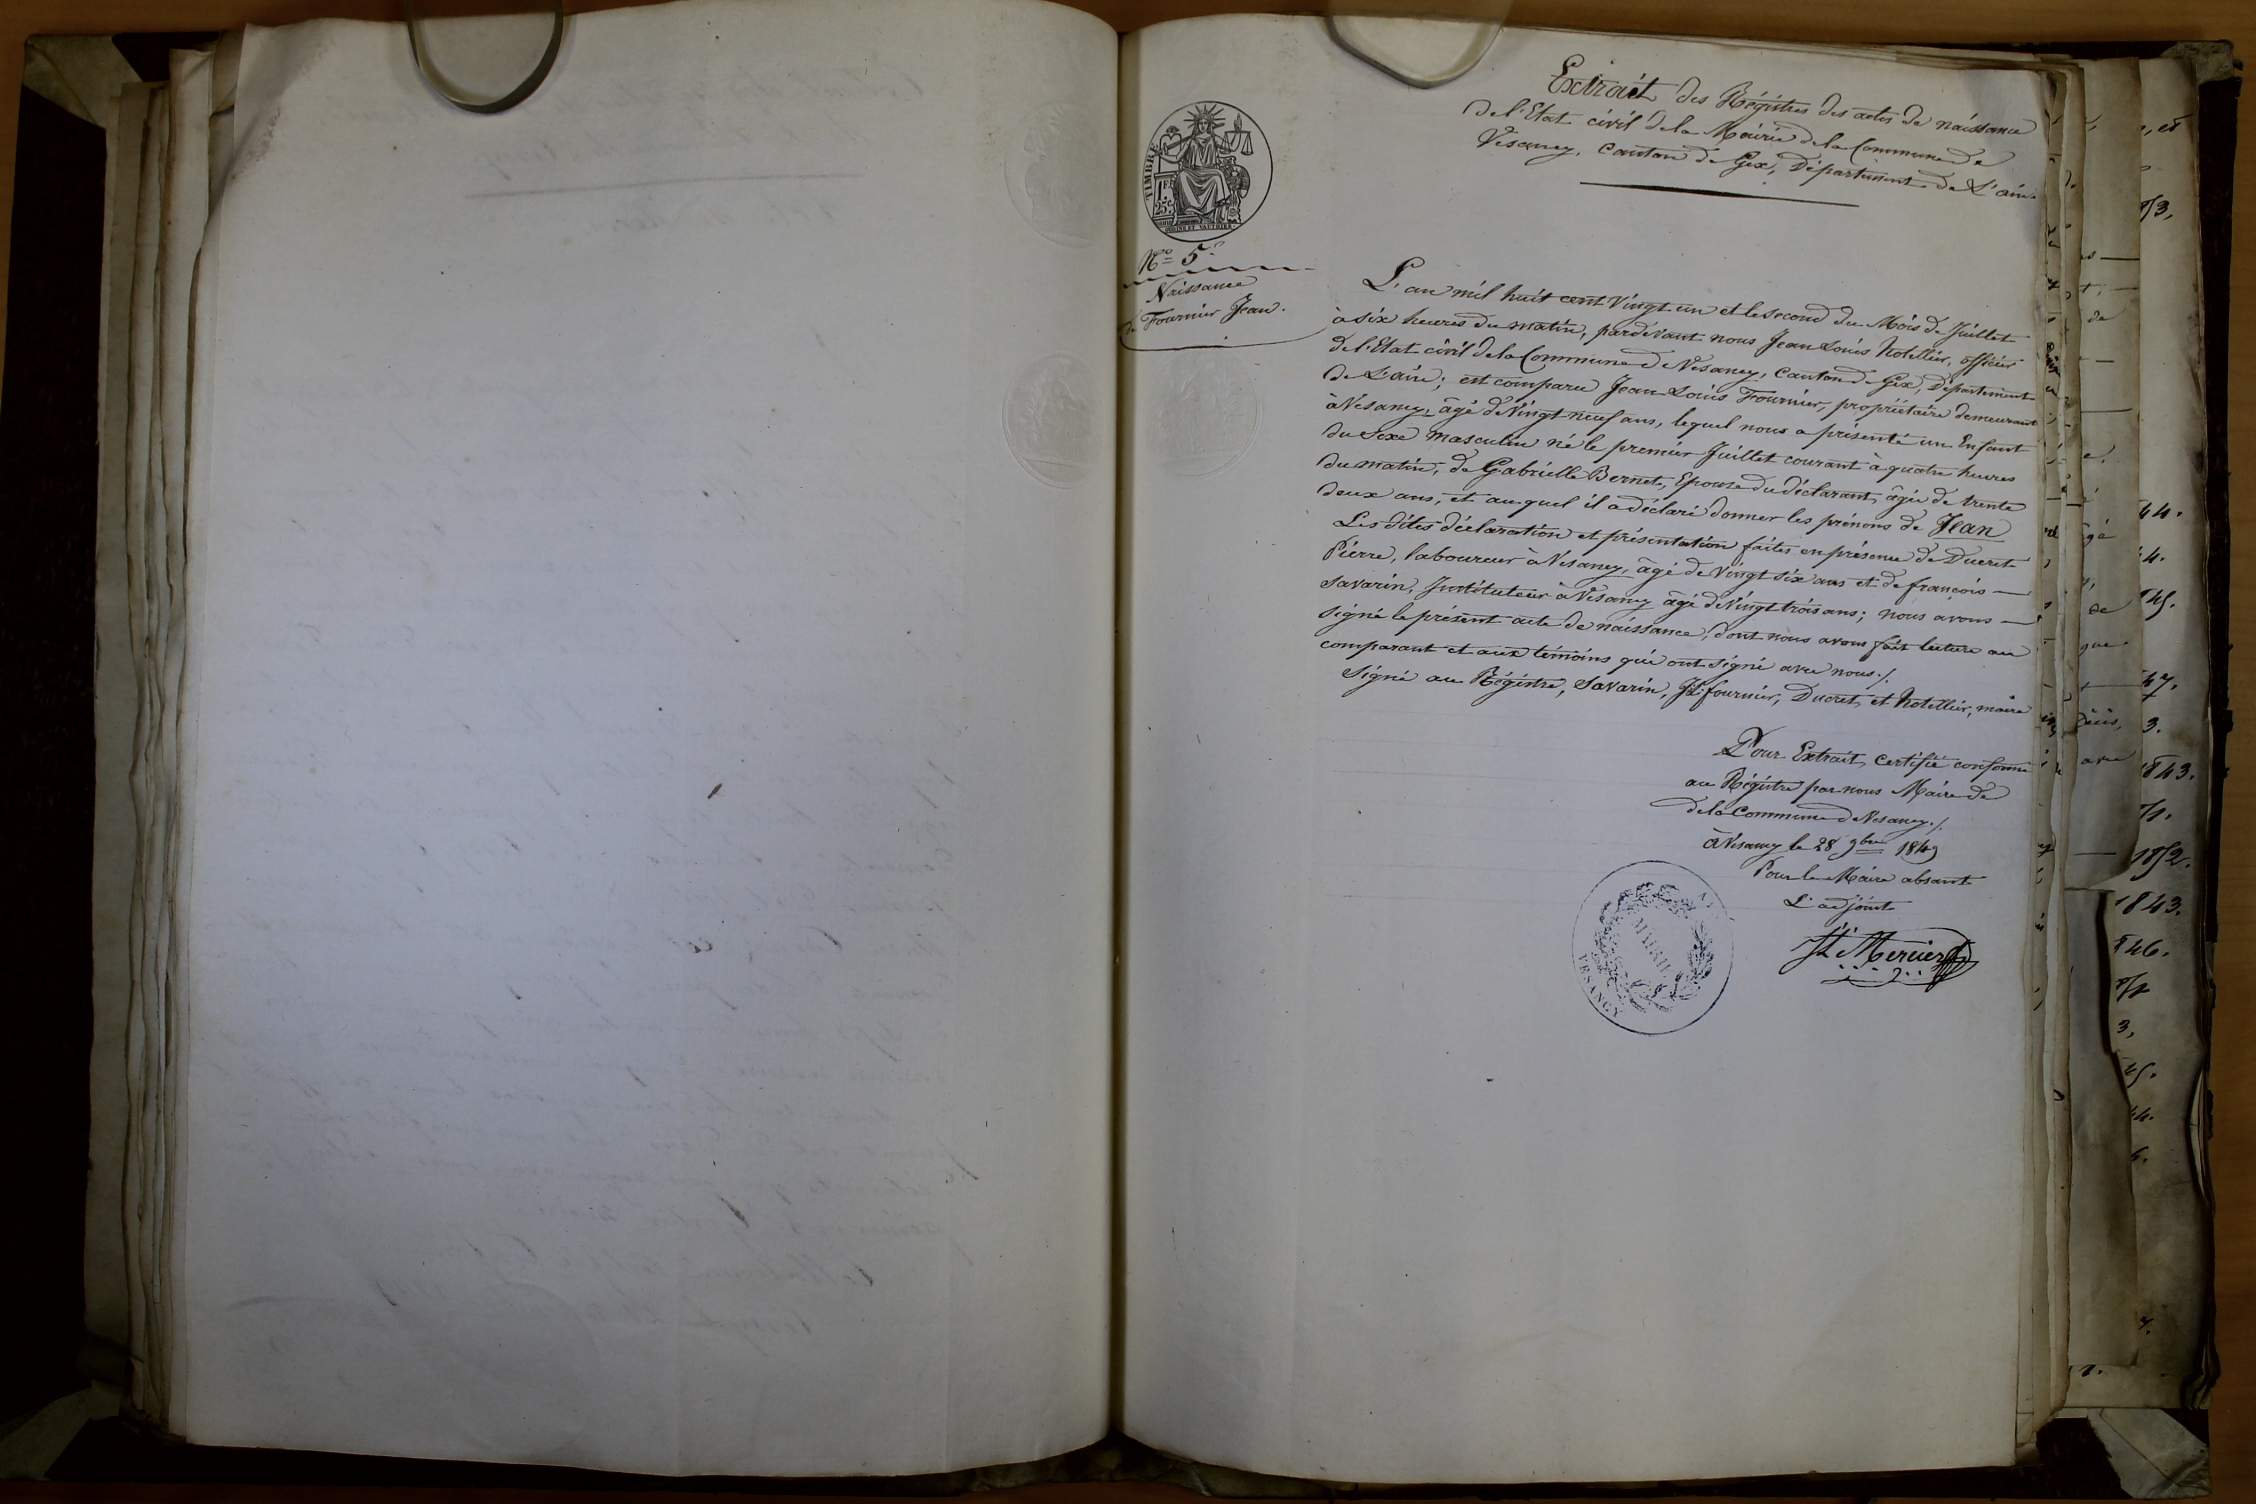 Extrait des Régistres des actes de naissance
de l'Etat civil de la Mairie de la Commune de
Vesancy, canton de Gex, Département de L'ain.
TIMBRE
1 FR
25 c
N.º 5.
Naissance
de Fournier Jean.
L'an mil huit cent Vingt un et le second du Mois de Juillet
à six heures du matin, pardevant nous Jean Louis hotellier, officier
de l'Etat civil de la Commune de Vesancy, canton de Gex, Département
de L'ain; est comparu Jean Louis Fournier, propriétaire demeurant
à Vesancy, âgé de Vingt neuf ans, lequel nous a présenté un Enfant
du Sexe masculin né le premier Juillet courant à quatre heures
du matin, de Gabrielle Bernet, Epouse du déclarant, âgée de trente
deux ans, et auquel il a déclaré donner les prénoms de Jean
Les dites déclaration et présentation faites en présence de Ducret
Pierre, laboureur à Vesancy, âgé de Vingt six ans et de françois
Savarin, Instituteur à Vesancy âgé de Vingt trois ans; nous avons
signé le présent acte de naissance, dont nous avons fait lecture au
comparant et aux témoins qui ont signé avec nous./.
Signé au Régistre, Savarin, J.L. fournier, Ducret, et hotellier, maire
Pour Extrait, certifié conforme
au Régistre par nous Maire de
de la Commune de Vesancy./.
à Vesancy le 28 9bre 1849
Pour le Maire absant
L'adjoint
JL Mercier
MAIRIE
VESANCY